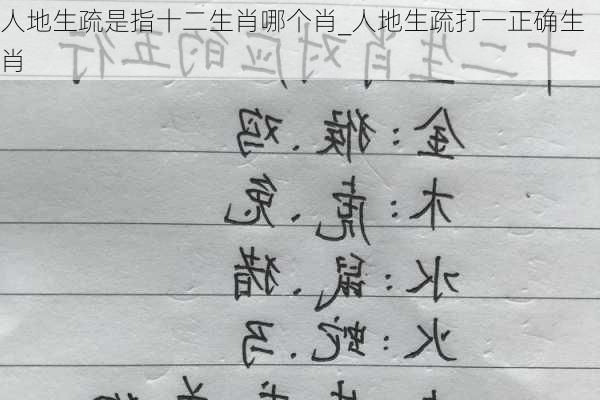 人地生疏是指十二生肖哪个肖_人地生疏打一正确生
肖
十二生肖对应的五行
金:猴、鸡
木:虎、兔
水:鼠、猪
火:蛇、马